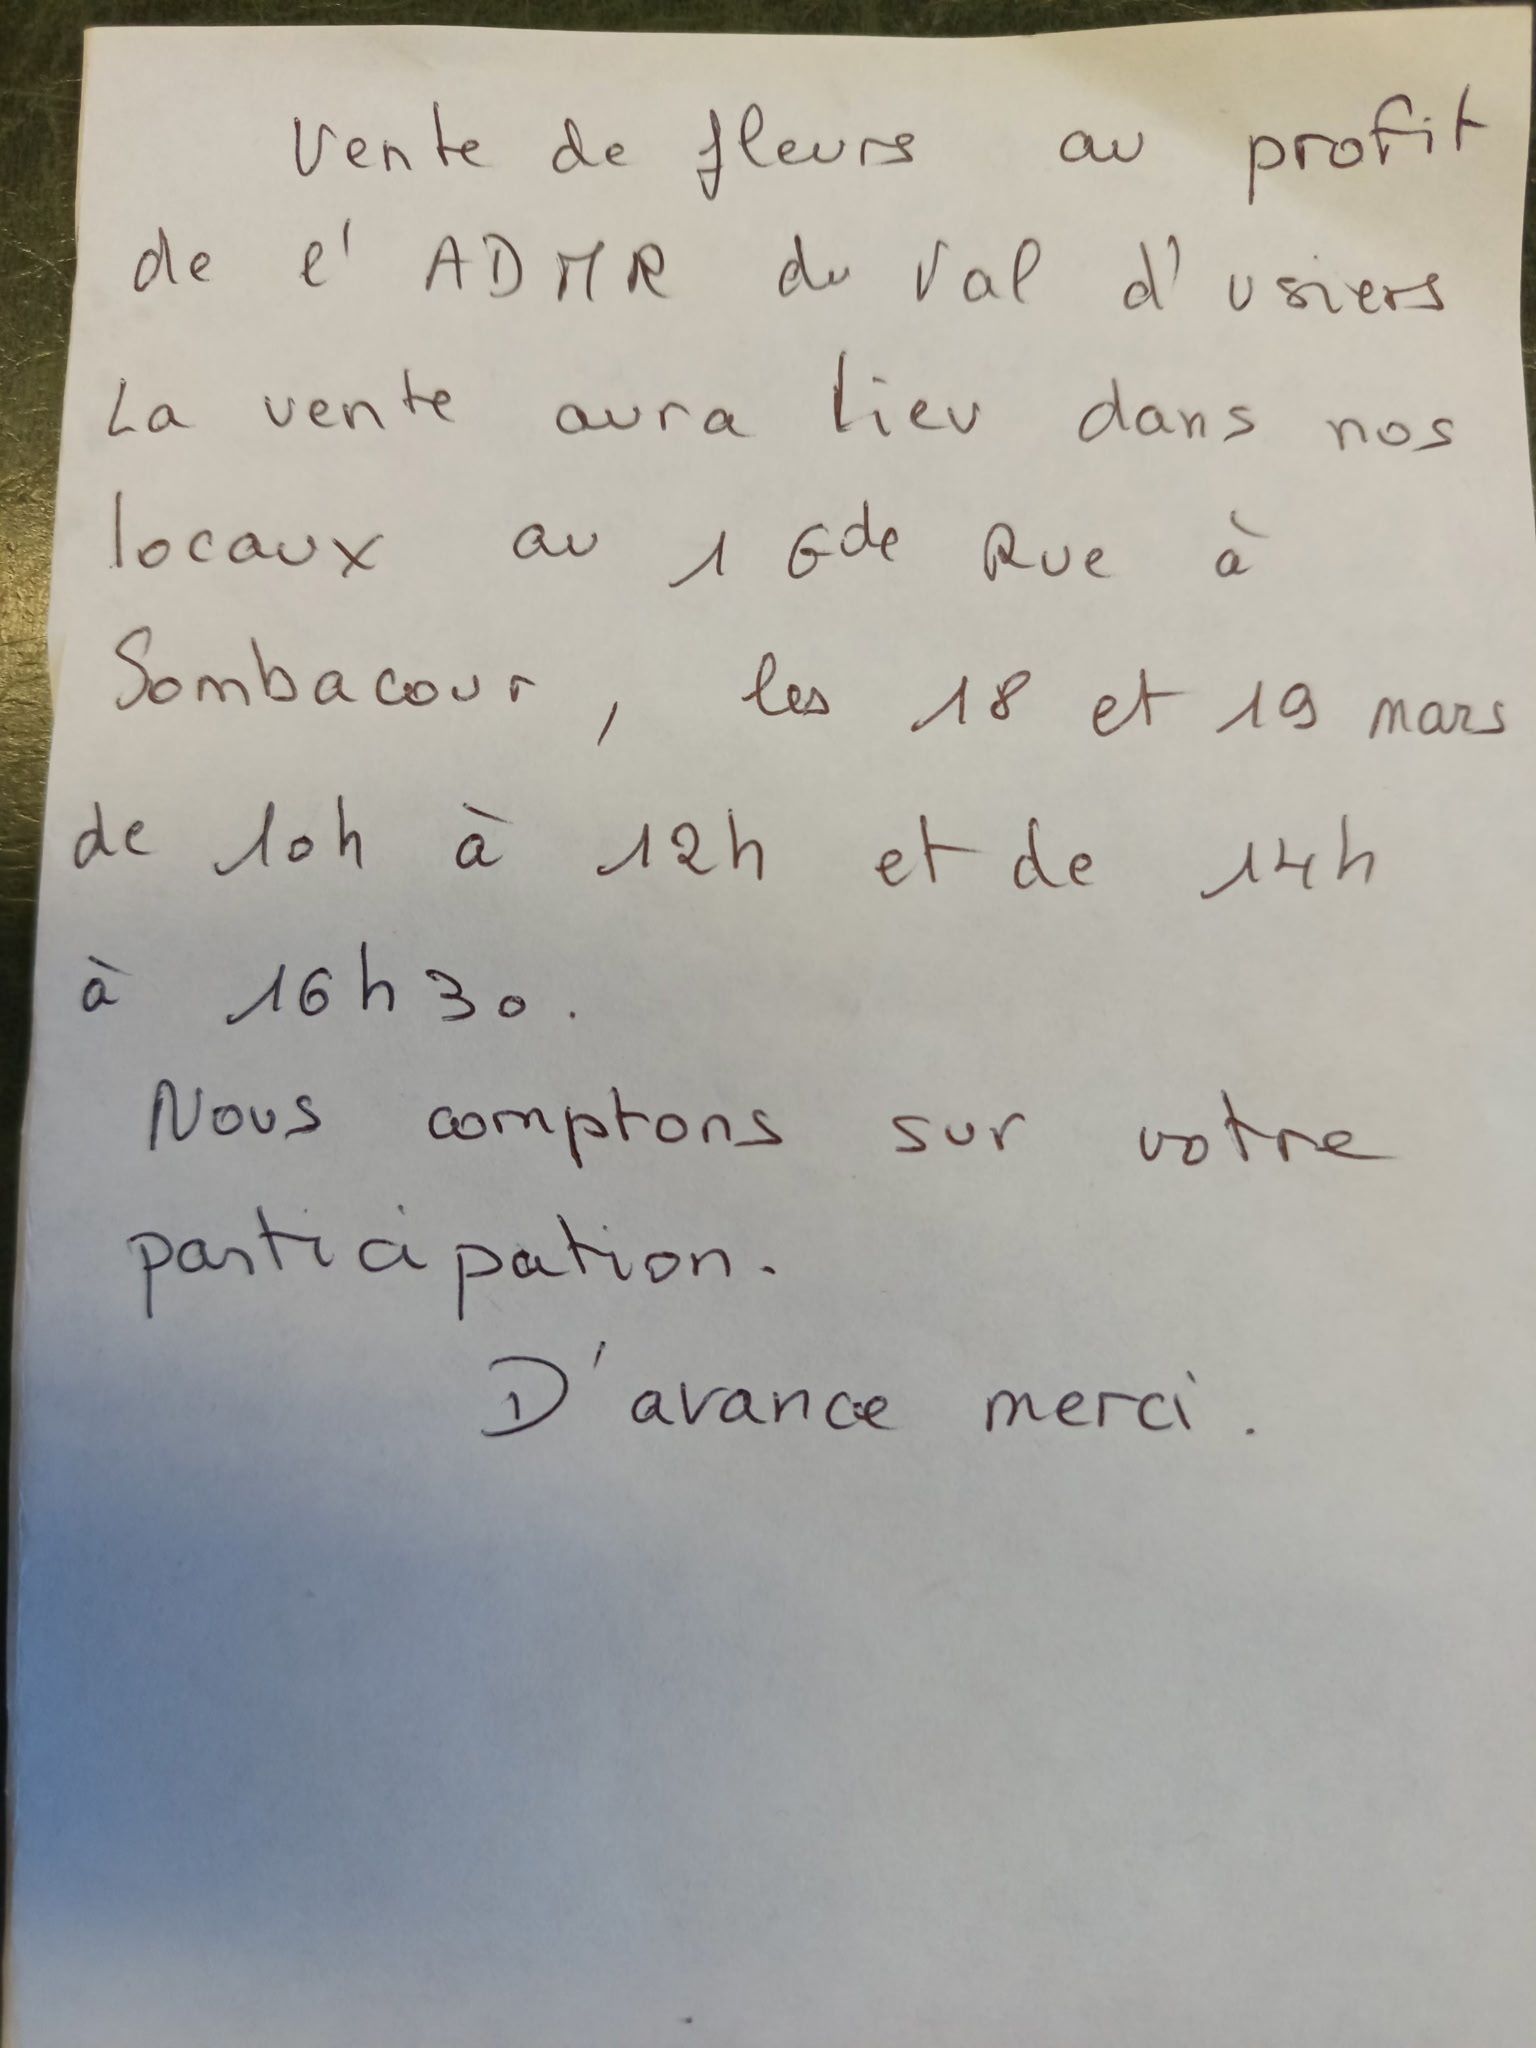 Vente de fleurs au profit
de l'ADMR du Val d'usiers
La vente aura lieu dans nos
locaux au 1 Gde Rue à
Sombacour, les 18 et 19 mars
de 10h à 12h et de 14h
à 16h30.
Nous comptons sur votre
participation.
D'avance merci.